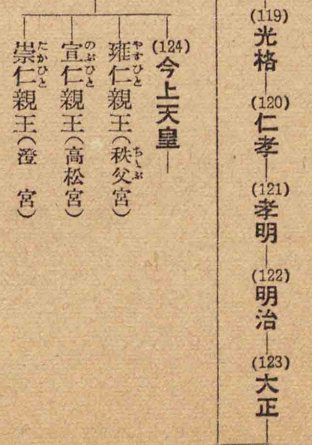 (119)
光格
(120)
仁孝
(121)
孝明
(122)
明治
(123)
大正
(124)
今上天皇
雍仁親王(秩父宮)
やすひと
ちちぶ
宣仁親王(高松宮)
のぶひと
崇仁親王(澄 宮)
たかひと